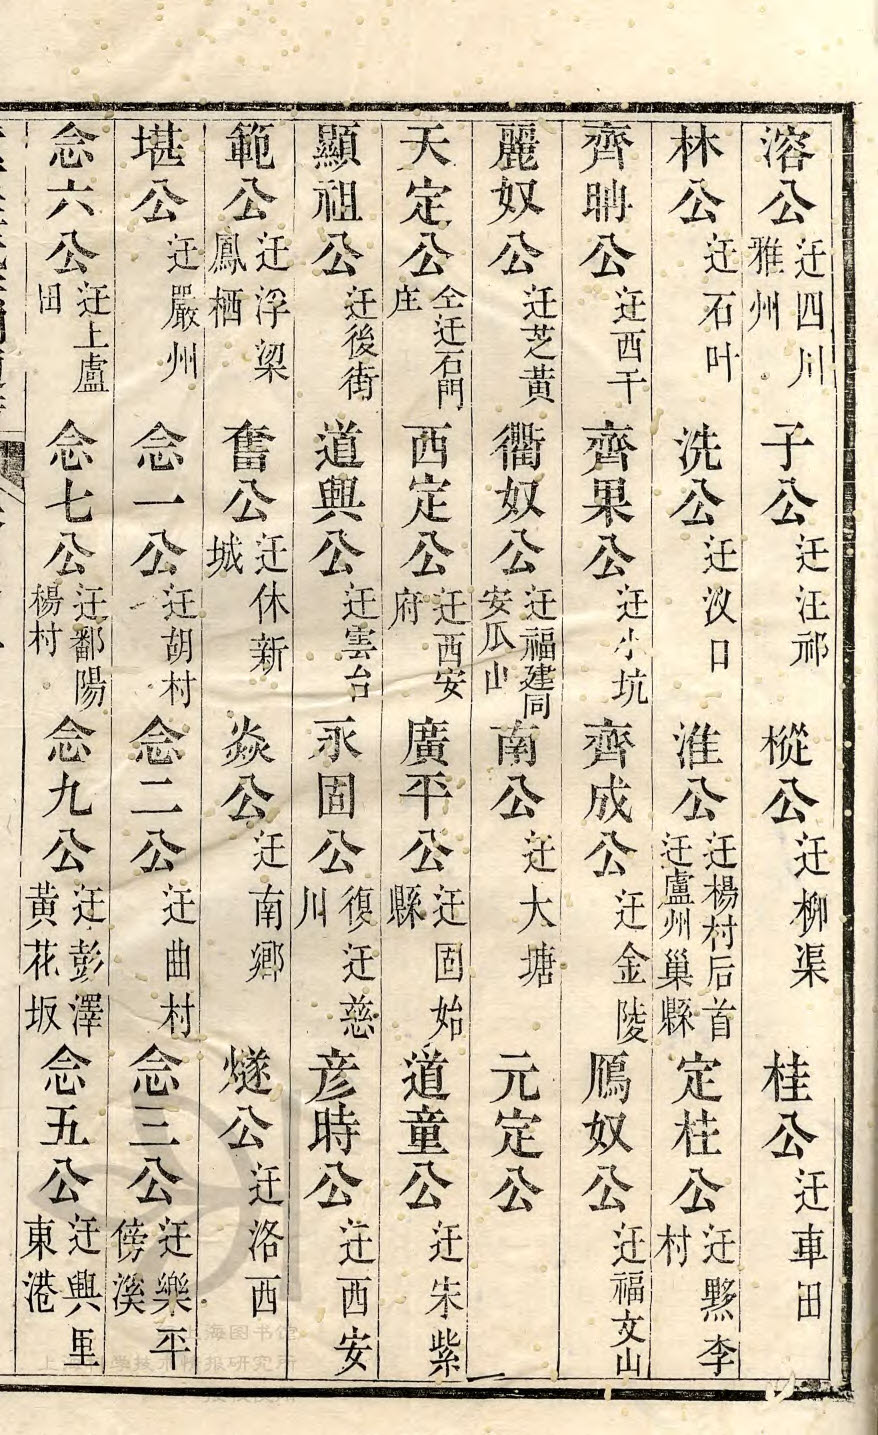 溶公迁四川雅州 子公迁汪祁 樅公迁柳渠 桂公迁車田
林公迁石叶 洗公迁汊口 淮公迁楊村后首迁廬州巢縣 定柱公迁黟李村
齊聃公迁西干 齊果公迁小坑 齊成公迁金陵 鴈奴公迁福文山
麗奴公迁芝黄 衢奴公迁福建同安瓜山 南公迁大塘 元定公
天定公仝迁石門庄 西定公迁西安府 廣平公迁固始縣 道童公迁朱紫
顯祖公迁後街 道興公迁雲台 永固公復迁慈川 彦時公迁西安
範公迁浮梁鳳栖 奮公迁休新城 焱公迁南鄉 燧公迁洛西
堪公迁嚴州 念一公迁胡村 念二公迁曲村 念三公迁樂平傍溪
念六公迁上盧田 念七公迁鄱陽楊村 念九公迁彭澤黄花坂 念五公迁興里東港